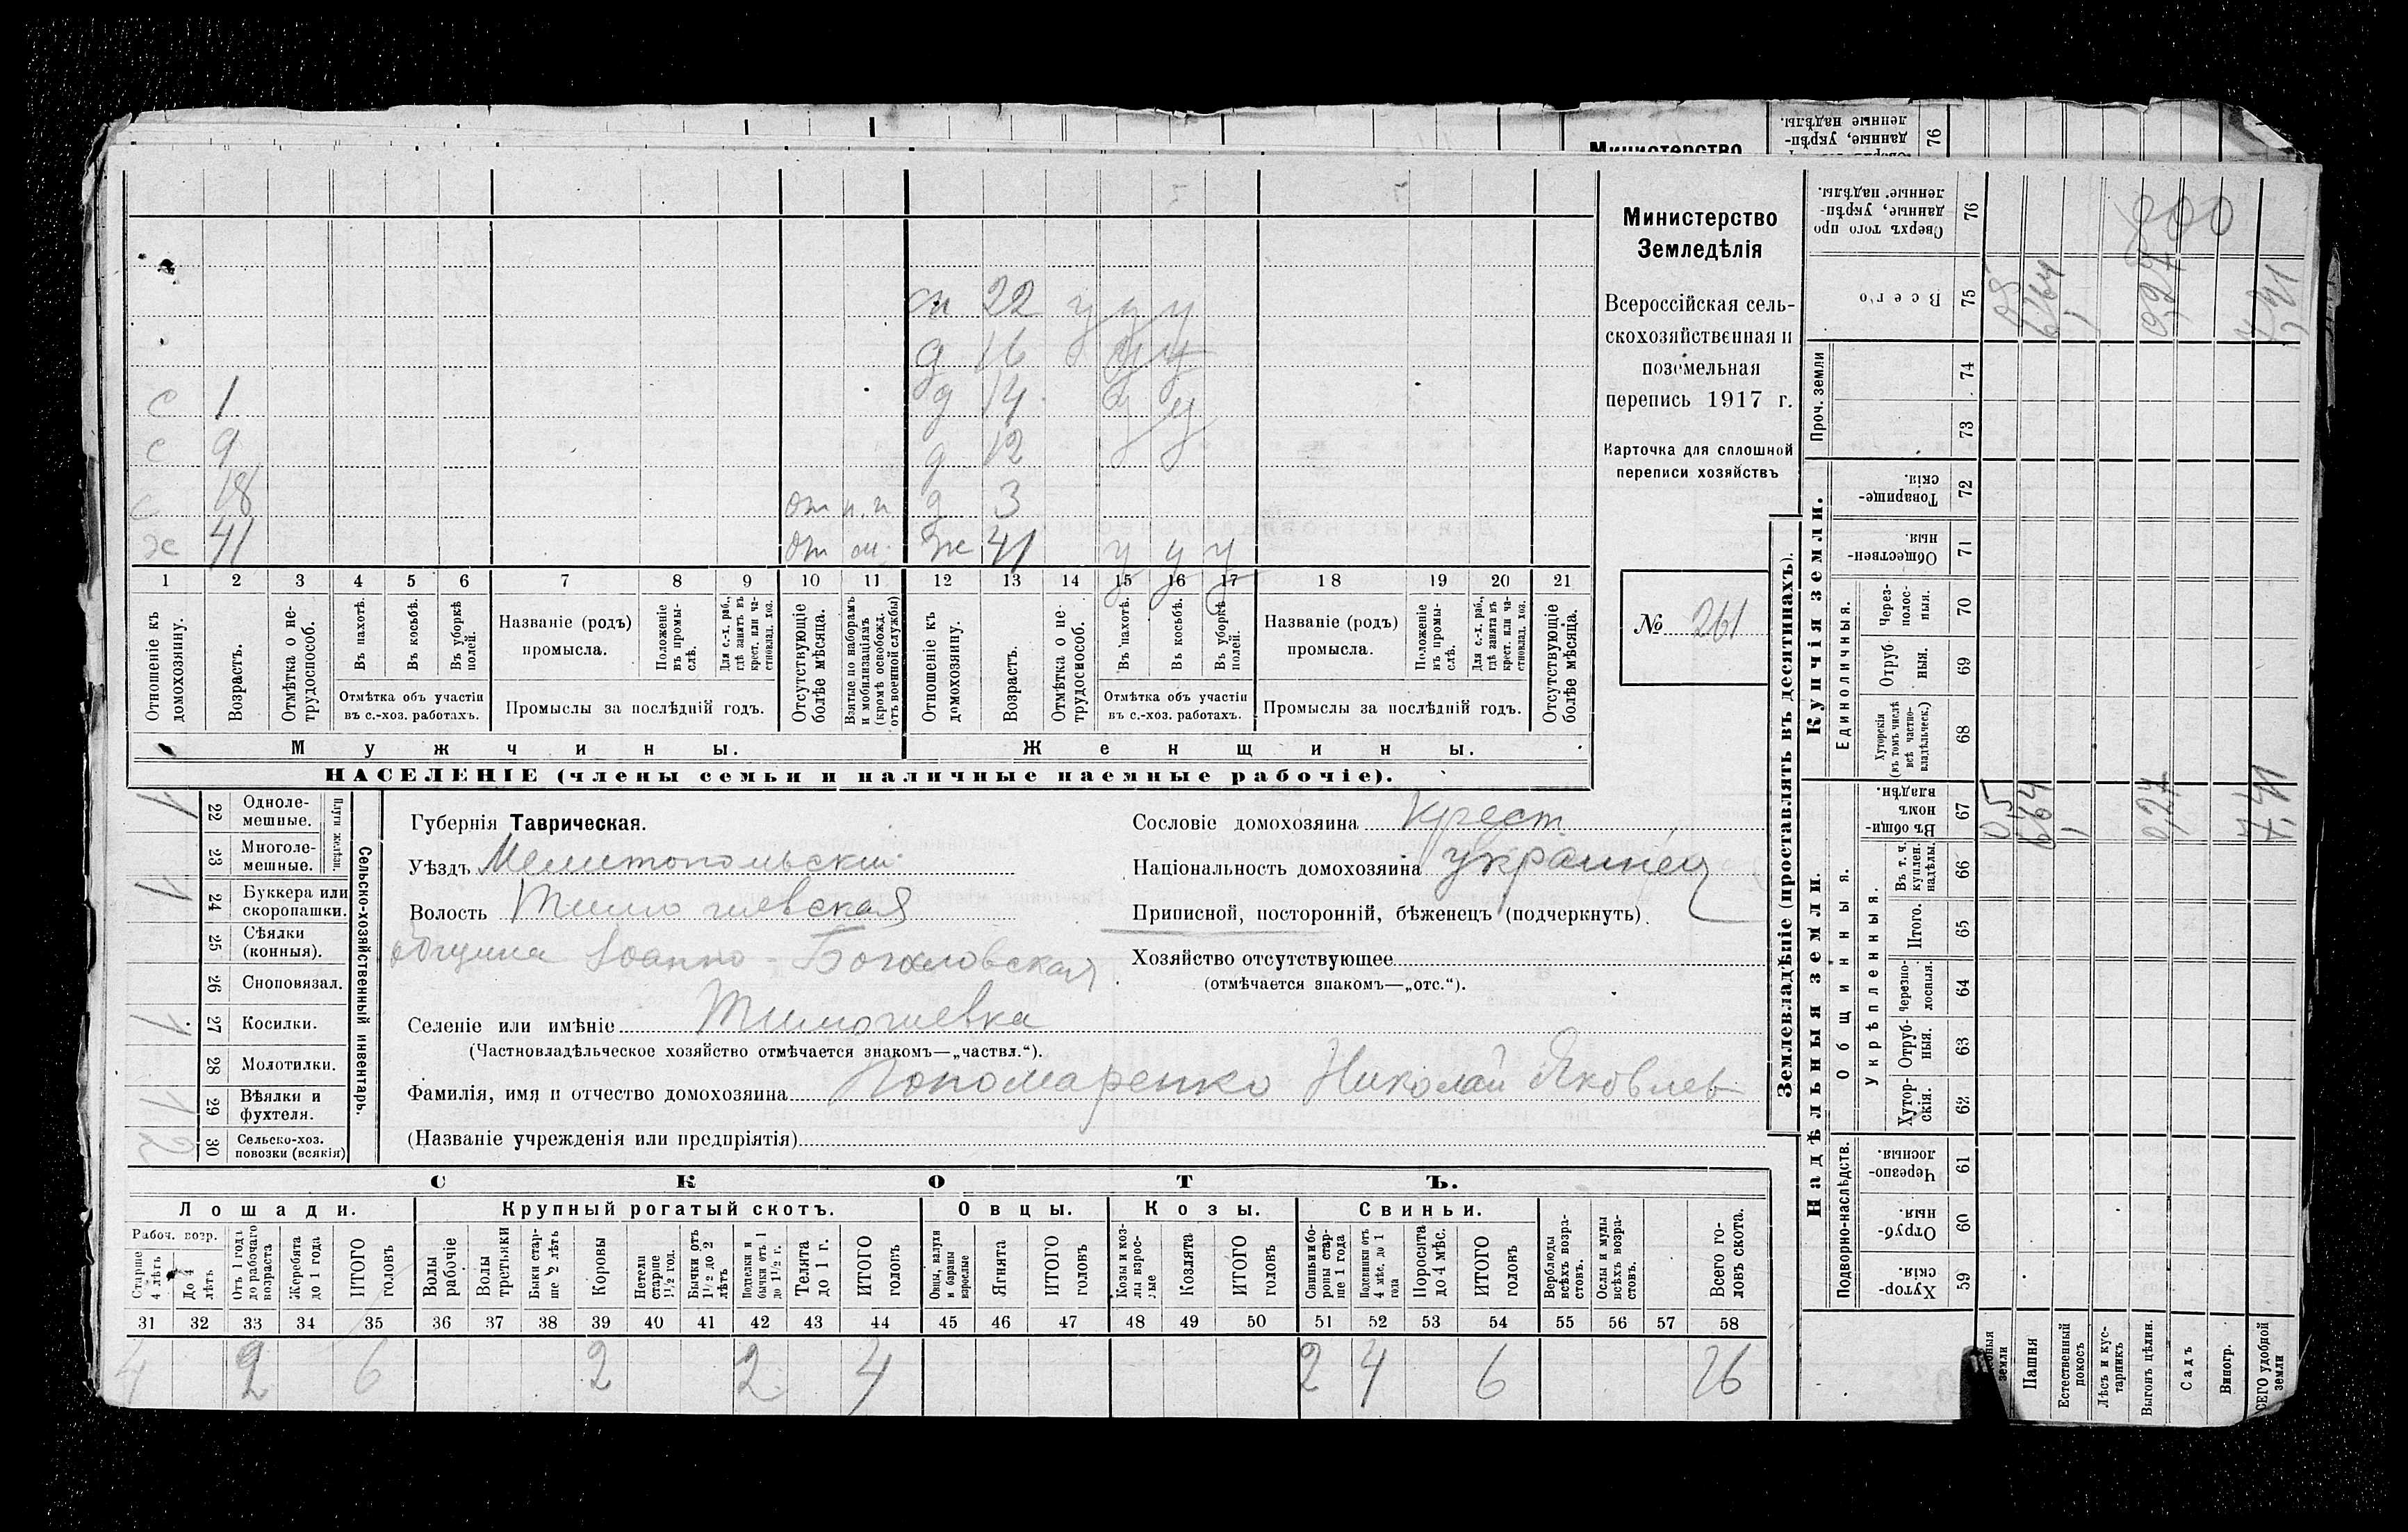 Министерство
Министерство
Земледѣлія
Всероссійская сель-
скохозяйственная и
поземельная
перепись 1917 г.
Карточка для сплошной
переписи хозяйствъ
№ 261
сн 22 у у у
д 16 у у
с 1 д 14 у у
с 9 д 12
с 18 от д 3
х 41 от ж 41 у у у
1 2 3 4 5 6 7 8 9 10 11 12 13 14 15 16 17 18 19 20 21
Отношеніе къ домохозяину.
Возрастъ.
Отмѣтка о не-трудоспособ.
Въ пахотѣ.
Въ косьбѣ.
Въ уборкѣ полей.
Отмѣтка объ участіи
въ с.-хоз. работахъ.
Названіе (родъ)
промысла.
Положеніе въ промы-слѣ.
Для с.-х. раб., гдѣ занятъ въ крест. или ча-стновлад. хоз.
Промыслы за послѣдній годъ.
Отсутствующіе болѣе мѣсяца.
Взятые по наборамъ и мобилизаціямъ (кромѣ освобожд. отъ военной службы)
Отношеніе къ домохозяину.
Возрастъ.
Отмѣтка о не-трудоспособ.
Въ пахотѣ.
Въ косьбѣ.
Въ уборкѣ полей.
Отмѣтка объ участіи
въ с.-хоз. работахъ.
Названіе (родъ)
промысла.
Положеніе въ промы-слѣ.
Для с.-х. раб., гдѣ занята въ крест. или ча-стновлад. хоз.
Промыслы за послѣдній годъ.
Отсутствующіе болѣе мѣсяца.
Мужчины. Женщины.
НАСЕЛЕНІЕ (члены семьи и наличные наемные рабочіе).
Сельско-хозяйственный инвентарь.
Плуги желѣзн.
22 Одноле-мешные. 1
23 Многоле-мешные.
24 Буккера или скоропашки. 1
25 Сѣялки (конныя).
26 Сноповязал.
27 Косилки. 1
28 Молотилки.
29 Вѣялки и фухтеля. 1
30 Сельско-хоз. повозки (всякія) 2
Губернія Таврическая.
Уѣздъ Мелитопольский
Волость Тимошевская
община Иоанно-Богословская
Селеніе или имѣніе Тимошевка
(Частновладѣльческое хозяйство отмѣчается знакомъ—„частвл.“).
Фамилія, имя и отчество домохозяина Пономаренко Николай Яковлев
(Названіе учрежденія или предпріятія)
Сословіе домохозяина Крест.
Національность домохозяина украинец
Приписной, посторонній, бѣженецъ (подчеркнуть).
Хозяйство отсутствующее
(отмѣчается знакомъ—„отс.“).
СКОТЪ.
Лошади. Крупный рогатый скотъ. Овцы. Козы. Свиньи.
Рабоч. возр.
Старше 4 лѣтъ
До 4 лѣтъ
Отъ 1 года до рабочаго возраста
Жеребята до 1 года
ИТОГО головъ
Волы рабочіе
Волы третьяки
Быки стар-ше 2 лѣтъ
Коровы
Нетели старше 1½ год.
Бычки отъ 1½ до 2 лѣтъ
Подтелки и бычки отъ 1 до 1½ г.
Телята до 1 г.
ИТОГО головъ
Овцы, валухи и бараны взрослые
Ягнята
ИТОГО головъ
Козы и коз-лы взрос-лые
Козлята
ИТОГО головъ
Свиньи и бо-ровы стар-ше 1 года
Подсвинки отъ 4 мѣс. до 1 года
Поросята до 4 мѣс.
ИТОГО головъ
Верблюды всѣхъ возра-стовъ.
Ослы и мулы всѣхъ возра-стовъ.
Всего го-ловъ скота.
31 32 33 34 35 36 37 38 39 40 41 42 43 44 45 46 47 48 49 50 51 52 53 54 55 56 57 58
4 2 6 2 2 4 2 4 6 16
Землевладѣніе (проставлять въ десятинахъ).
Надѣльныя земли. Купчія земли.
Сверхъ того про-данные, укрѣп-ленные надѣлы. 76
Всего 75
Проч. земли 74 73
Товарище-скія. 72
Обществен-ныя. 71
Единоличныя.
Через-полос-ныя. 70
Отруб-ныя. 69
Хуторскія (въ томъ числѣ всѣ частно-владѣльческ.) 68
Общинныя.
Въ общи-номъ владѣн. 67
Укрѣпленныя.
Въ т. ч. куплен. надѣлы. 66
Итого. 65
Черезпо-лосныя. 64
Отруб-ныя. 63
Хутор-скія. 62
Подворно-наслѣдств.
Черезпо-лосныя. 61
Отруб-ныя. 60
Хутор-скія. 59
земли
Пашня 664
Естественный покосъ
Лѣсъ и кус-тарникъ
Выгонъ цѣлин.
Садъ
Виногр.
ВСЕГО удобной земли